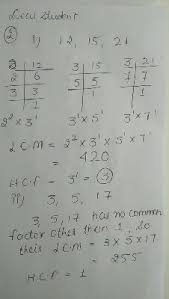 Dear Student
②
i) 12, 15, 21
2 | 12   3 | 15   3 | 21
2 | 6   5 | 5   7 | 7
3 | 3   | 1   | 1
| 1
2² × 3¹   3¹ × 5¹   3¹ × 7¹
L C M = 2² × 3¹ × 5¹ × 7¹
= 420
H.C.F = 3¹ = ③
ii) 3, 5, 17
3, 5, 17 has no common
factor other than 1. so
their L C M = 3 × 5 × 17
= 255
H.C.F = 1